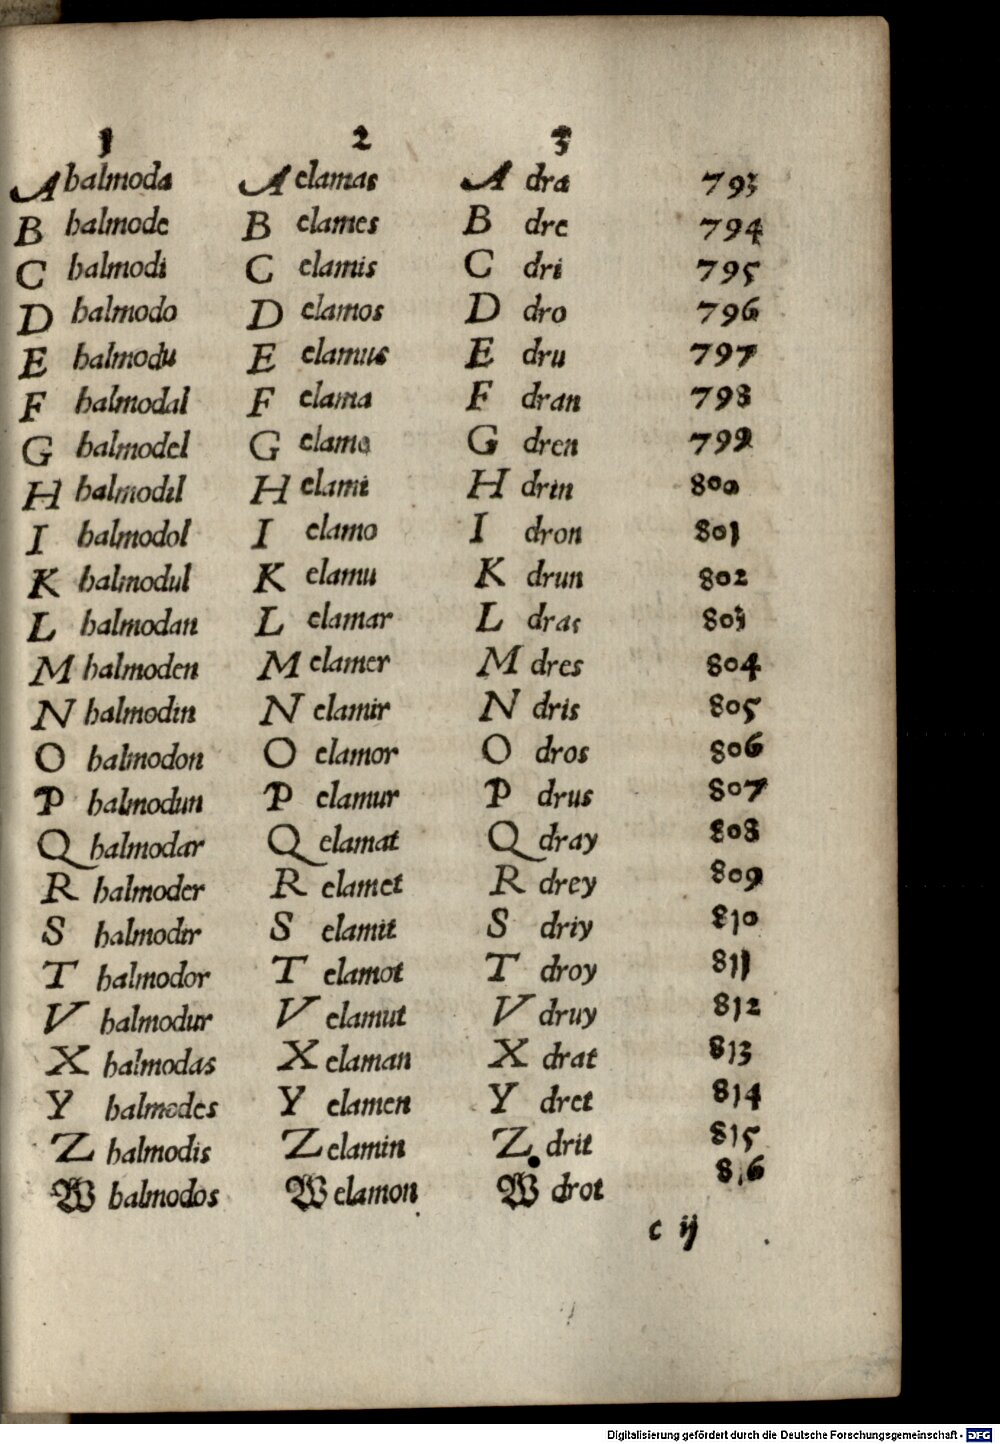 1 2 3
A balmoda A elamas A dra 793
B balmode B elames B dre 794
C balmodi C elamis C dri 795
D balmodo D elamos D dro 796
E balmodu E elamus E dru 797
F balmodal F elama F dran 798
G balmodel G elame G dren 799
H balmodil H elami H drin 800
I balmodol I elamo I dron 801
K balmodul K elamu K drun 802
L balmodan L elamar L dras 803
M balmoden M elamer M dres 804
N balmodin N elamir N dris 805
O balmodon O elamor O dros 806
P balmodun P elamur P drus 807
Q balmodar Q elamat Q dray 808
R balmoder R elamet R drey 809
S balmodir S elamit S driy 810
T balmodor T elamot T droy 811
V balmodur V elamut V druy 812
X balmodas X elaman X drat 813
Y balmodes Y elamen Y dret 814
Z balmodis Z elamin Z drit 815
W balmodos W elamon W drot 816
c ij
Digitalisierung gefördert durch die Deutsche Forschungsgemeinschaft - DFG